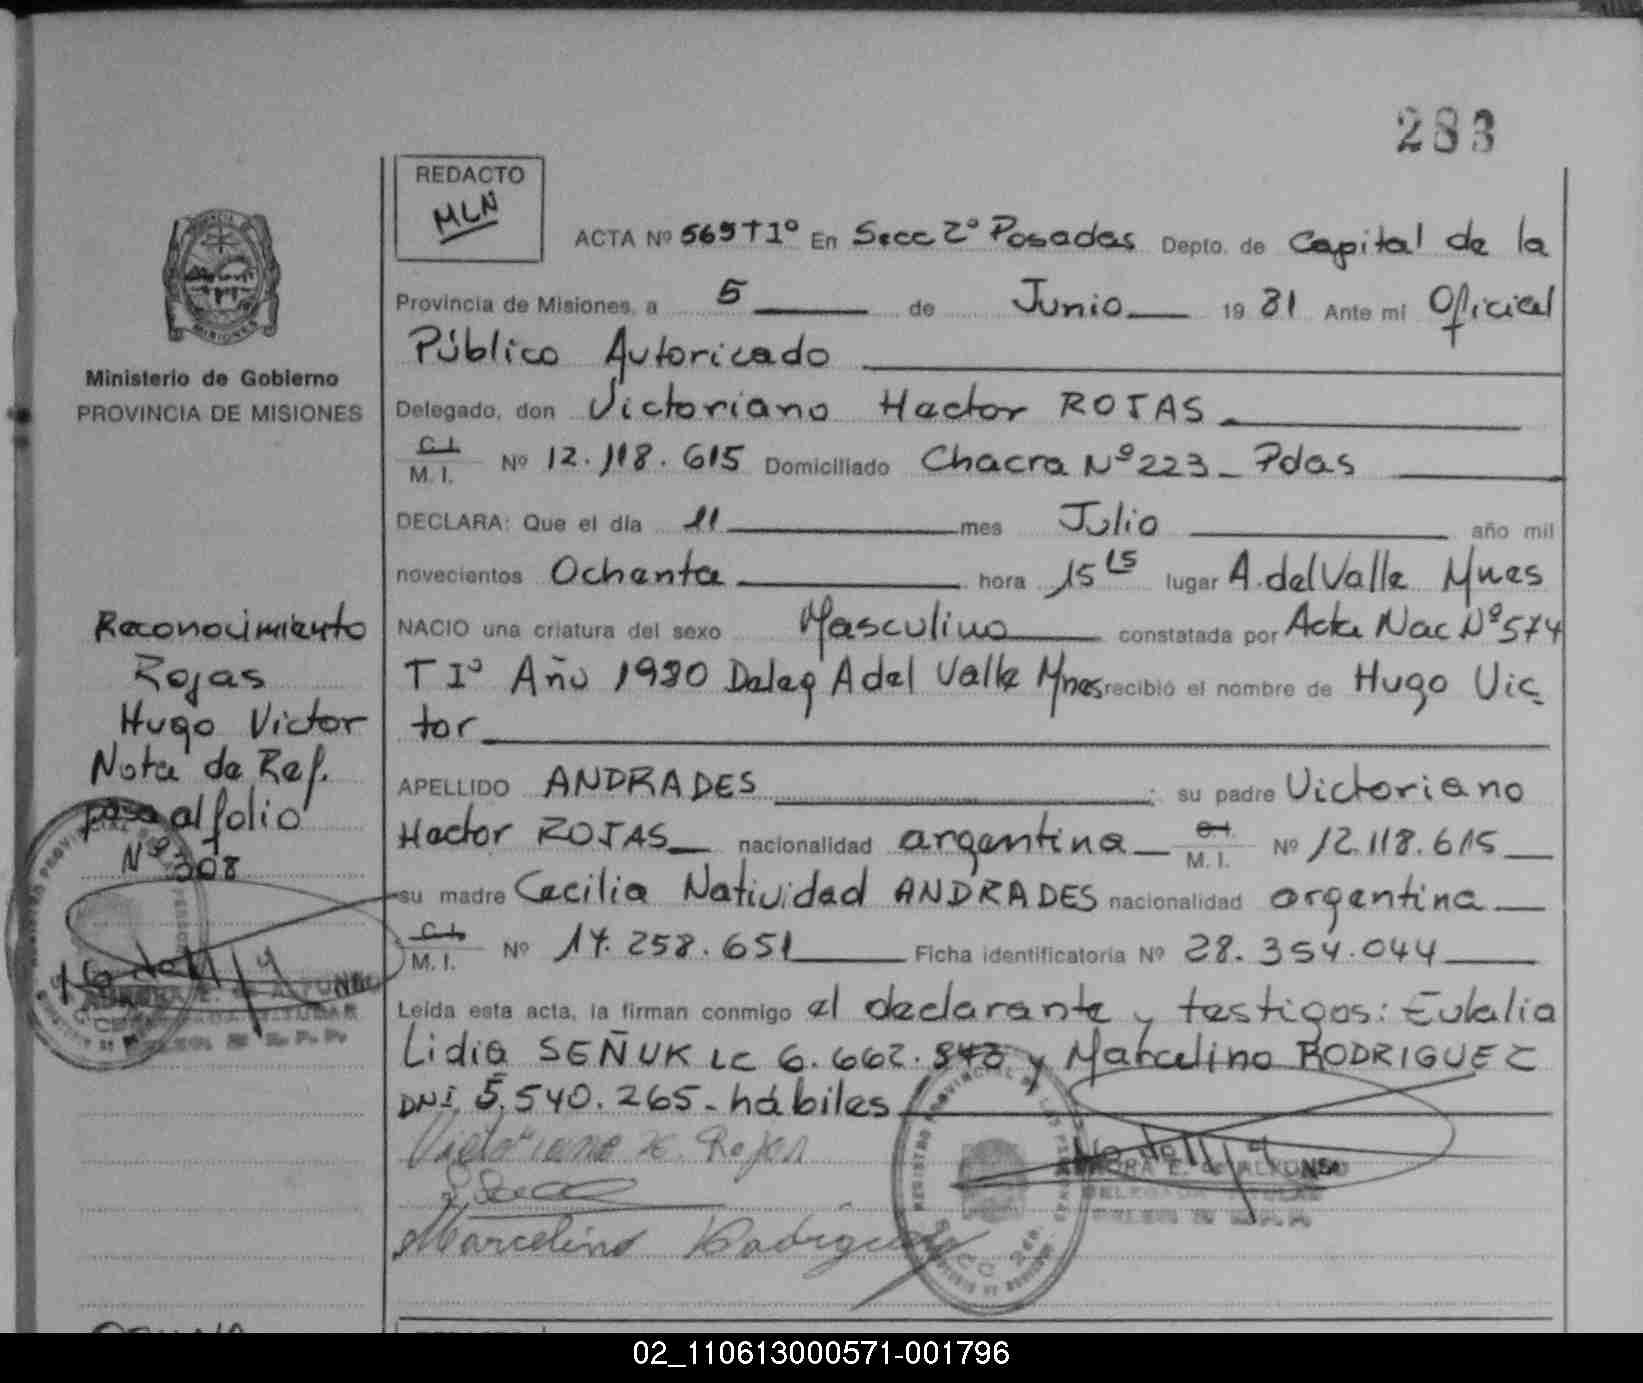 283
REDACTO
MLN
ACTA Nº 569 T1º En Secc 2º Posadas Depto. de Capital de la
Provincia de Misiones, a 5 de Junio 19 81 Ante mi Oficial
Público Autoricado
Delegado, don Victoriano Hector ROJAS
C.I.
M. I. Nº 12.118.615 Domiciliado Chacra Nº 223 - Pdas
DECLARA: Que el día 11 mes Julio año mil
novecientos Ochenta hora 15 15 lugar A. del Valle Mnes
NACIO una criatura del sexo Masculino constatada por Acta Nac Nº 574
T Iº Año 1980 Deleg A del Valle Mnes recibió el nombre de Hugo Vic
tor
APELLIDO ANDRADES ; su padre Victoriano
Hector ROJAS nacionalidad argentina C.I. M. I. Nº 12.118.615
su madre Cecilia Natividad ANDRADES nacionalidad argentina
C.I.
M. I. Nº 14.258.651 Ficha identificatoria Nº 28.354.044
Leída esta acta, la firman conmigo el declarante y testigos: Eulalia
Lidia SEÑUK LC 6.662.843 y Marcelino RODRIGUEZ
DNI 5.540.265 - hábiles
Victoriano H. Rojas
Marcelino Rodriguez
REGISTRO PROVINCIAL DE LAS PERSONAS
SECC 2da.
AURORA E. de ALFONSO
DELEGADA TITULAR
MISIONES
Ministerio de Gobierno
PROVINCIA DE MISIONES
Reconocimiento
Rojas
Hugo Victor
Nota de Ref.
pasa al folio
Nº 308
AURORA E. de ALFONSO
DELEGADA TITULAR
02_110613000571-001796